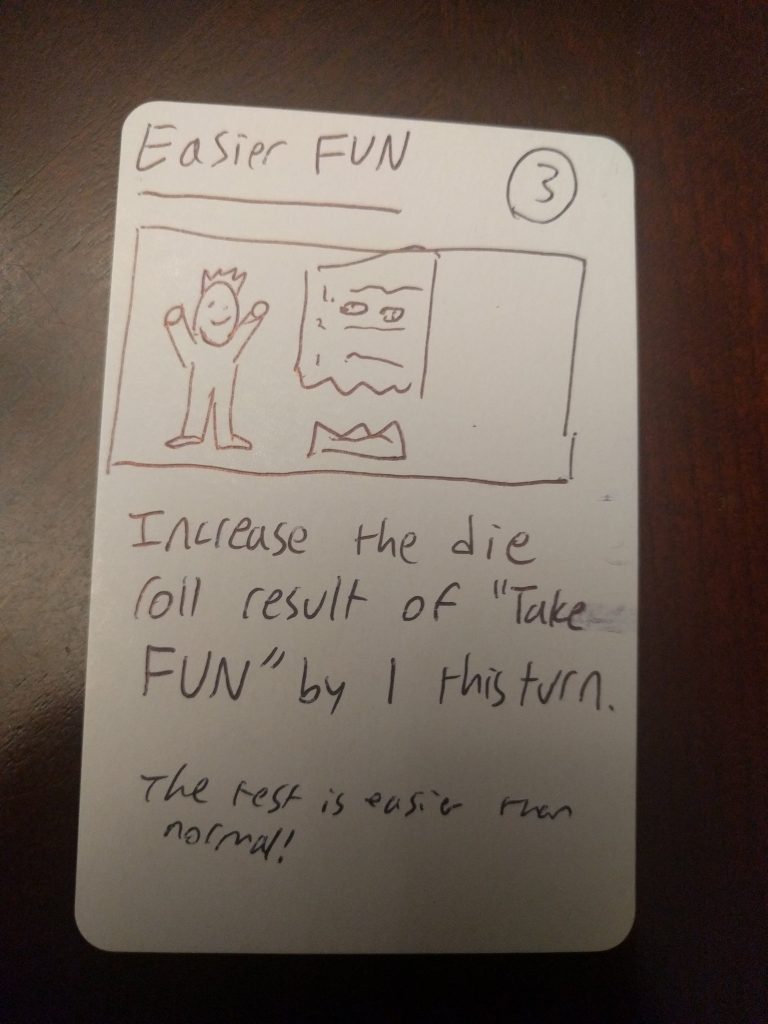 Easier FUN
3
1.
2.
Increase the die
roll result of "Take
FUN" by 1 this turn.
The test is easier than
normal!